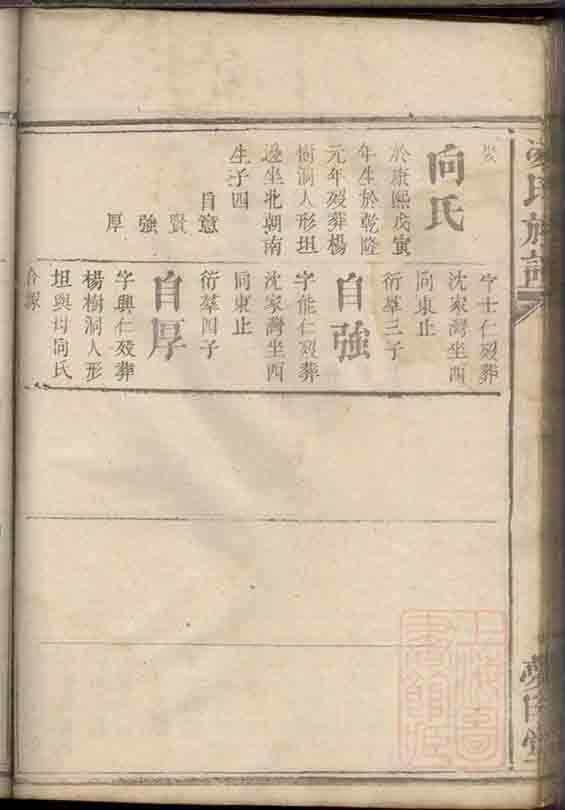 向氏
於康熙戊寅
年生於乾隆
元年歿葬楊
樹洞人形坦
邊坐北朝南
生子四
自意
賢
強
厚
字士仁歿葬
沈家灣坐西
向東止
衍羣三子
自強
字能仁歿葬
沈家灣坐西
向東止
衍羣四子
自厚
字興仁歿葬
楊樹洞人形
坦與母向氏
合塚
氏族
上海圖
書館藏